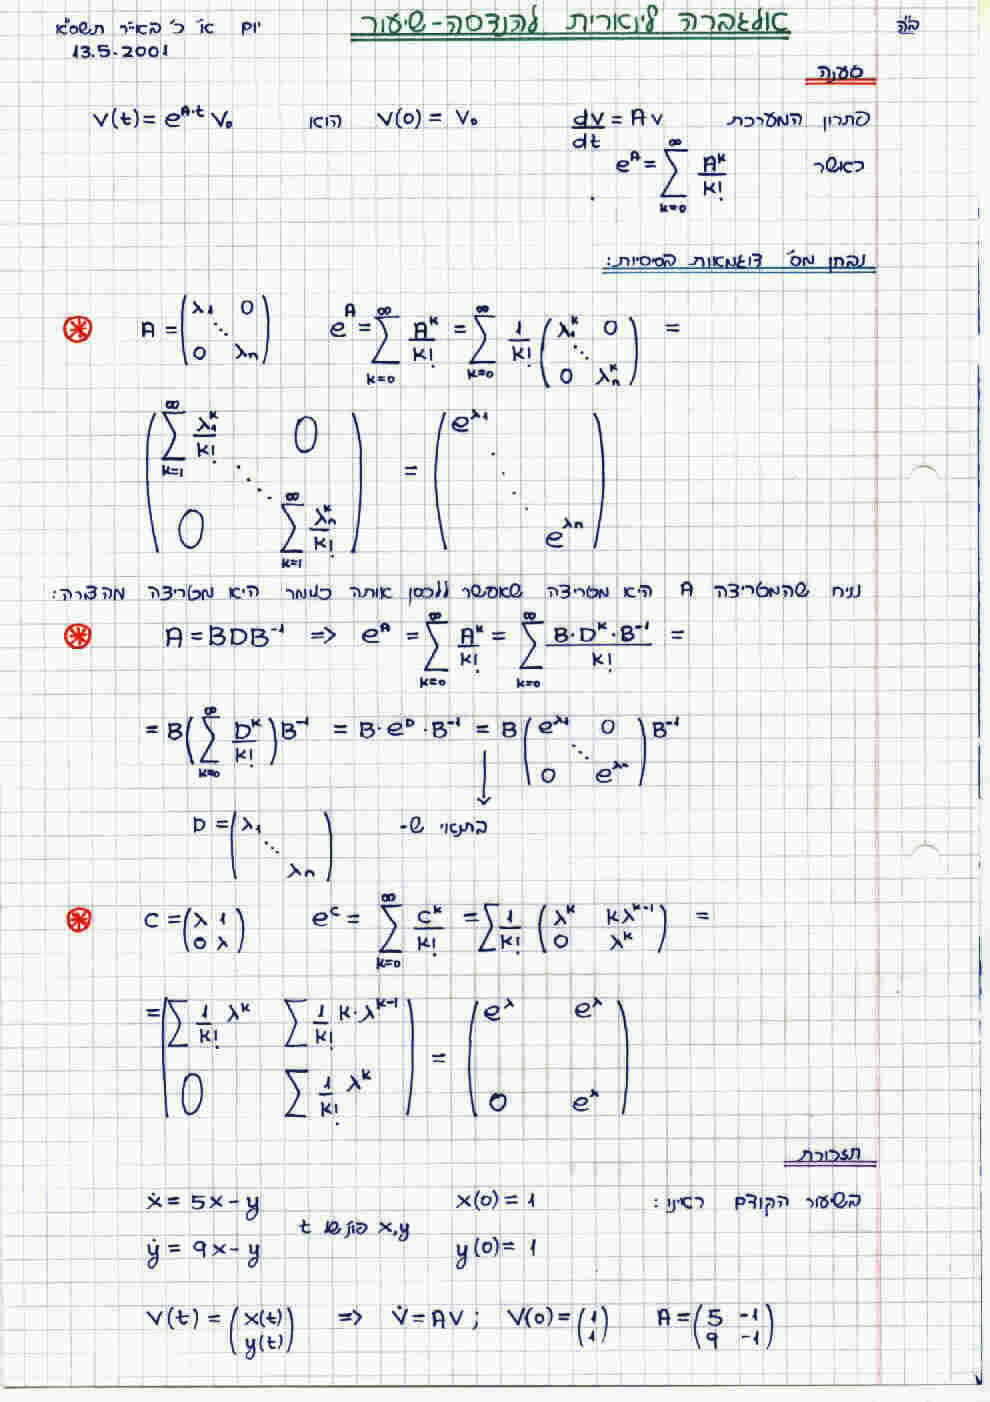 ב"ה
אלגברה לינארית להנדסה-שיעור
יום א' כ' באייר תשס"א
13.5.2001
טענה
פתרון המערכת dv/dt = Av   V(0) = V₀ הוא V(t) = e^{A·t} V₀
כאשר e^A = ∑_{k=0}^{∞} A^k/k!
נבחן מס' דוגמאות בסיסיות:
A = (λ₁ 0 ⋱ 0 λn)   e^A = ∑_{k=0}^{∞} A^k/k! = ∑_{k=0}^{∞} 1/k! (λ₁^k 0 ⋱ 0 λn^k) =
(∑_{k=1}^{∞} λ₁^k/k! 0 ⋱ 0 ∑_{k=1}^{∞} λn^k/k!) = (e^{λ₁} ⋱ e^{λn})
נניח שהמטריצה A היא מטריצה שאפשר ללכסן אותה כלומר היא מטריצה מהצורה:
A = BDB⁻¹ => e^A = ∑_{k=0}^{∞} A^k/k! = ∑_{k=0}^{∞} B·D^k·B⁻¹/k! =
= B(∑_{k=0}^{∞} D^k/k!)B⁻¹ = B·e^D·B⁻¹ = B(e^{λ₁} 0 ⋱ 0 e^{λn})B⁻¹
↓
בתנאי ש- D = (λ₁ ⋱ λn)
C = (λ 1 0 λ)   e^C = ∑_{k=0}^{∞} C^k/k! = ∑ 1/k! (λ^k kλ^{k-1} 0 λ^k) =
= (∑ 1/k! λ^k ∑ 1/k! k·λ^{k-1} 0 ∑ 1/k! λ^k) = (e^λ e^λ 0 e^λ)
תזכורת
בשיעור הקודם ראינו:
ẋ = 5x - y   x(0) = 1
x,y פונ' של t
ẏ = 9x - y   y(0) = 1
V(t) = (x(t) y(t)) => V̇ = AV ; V(0) = (1 1)   A = (5 -1 9 -1)